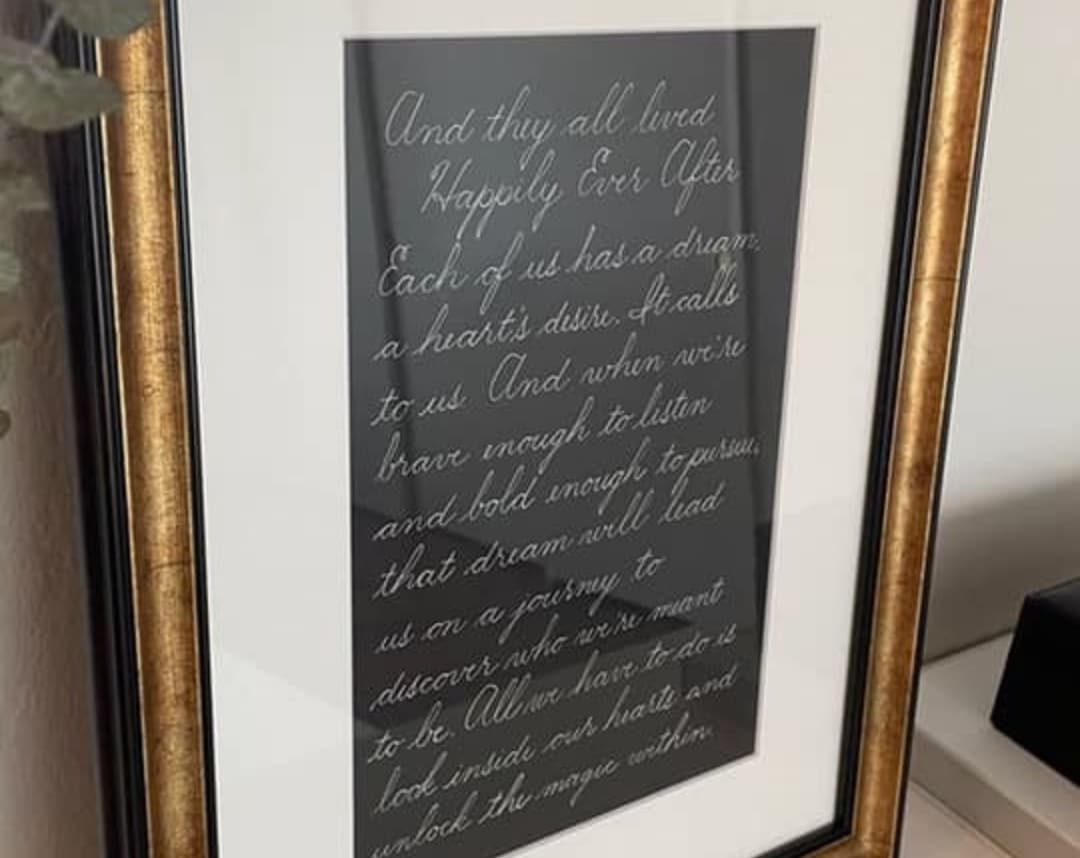 And they all lived
Happily Ever After
Each of us has a dream,
a heart's desire. It calls
to us. And when we're
brave enough to listen
and bold enough to pursue,
that dream will lead
us on a journey to
discover who we're meant
to be. All we have to do is
look inside our hearts and
unlock the magic within.